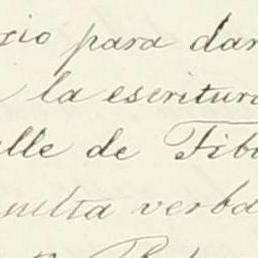 cio para dar
la escritura
alle de Tibi
sulta verba